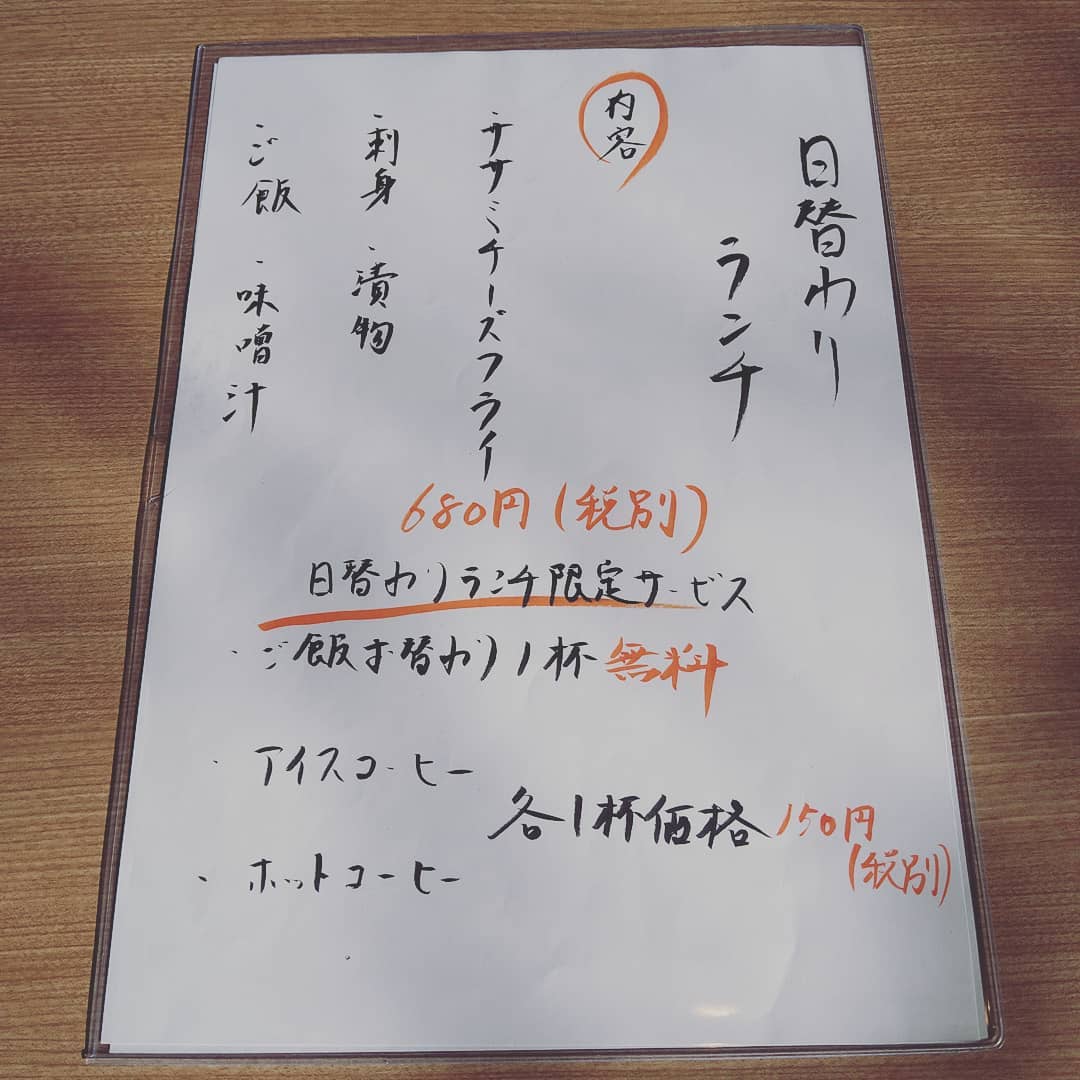 日替わり
ランチ
内容
・ササミチーズフライ
・刺身 ・漬物
・ご飯 ・味噌汁
680円(税別)
日替わりランチ限定サービス
・ご飯お替わり1杯無料
・アイスコーヒー
・ホットコーヒー
各1杯価格150円
(税別)